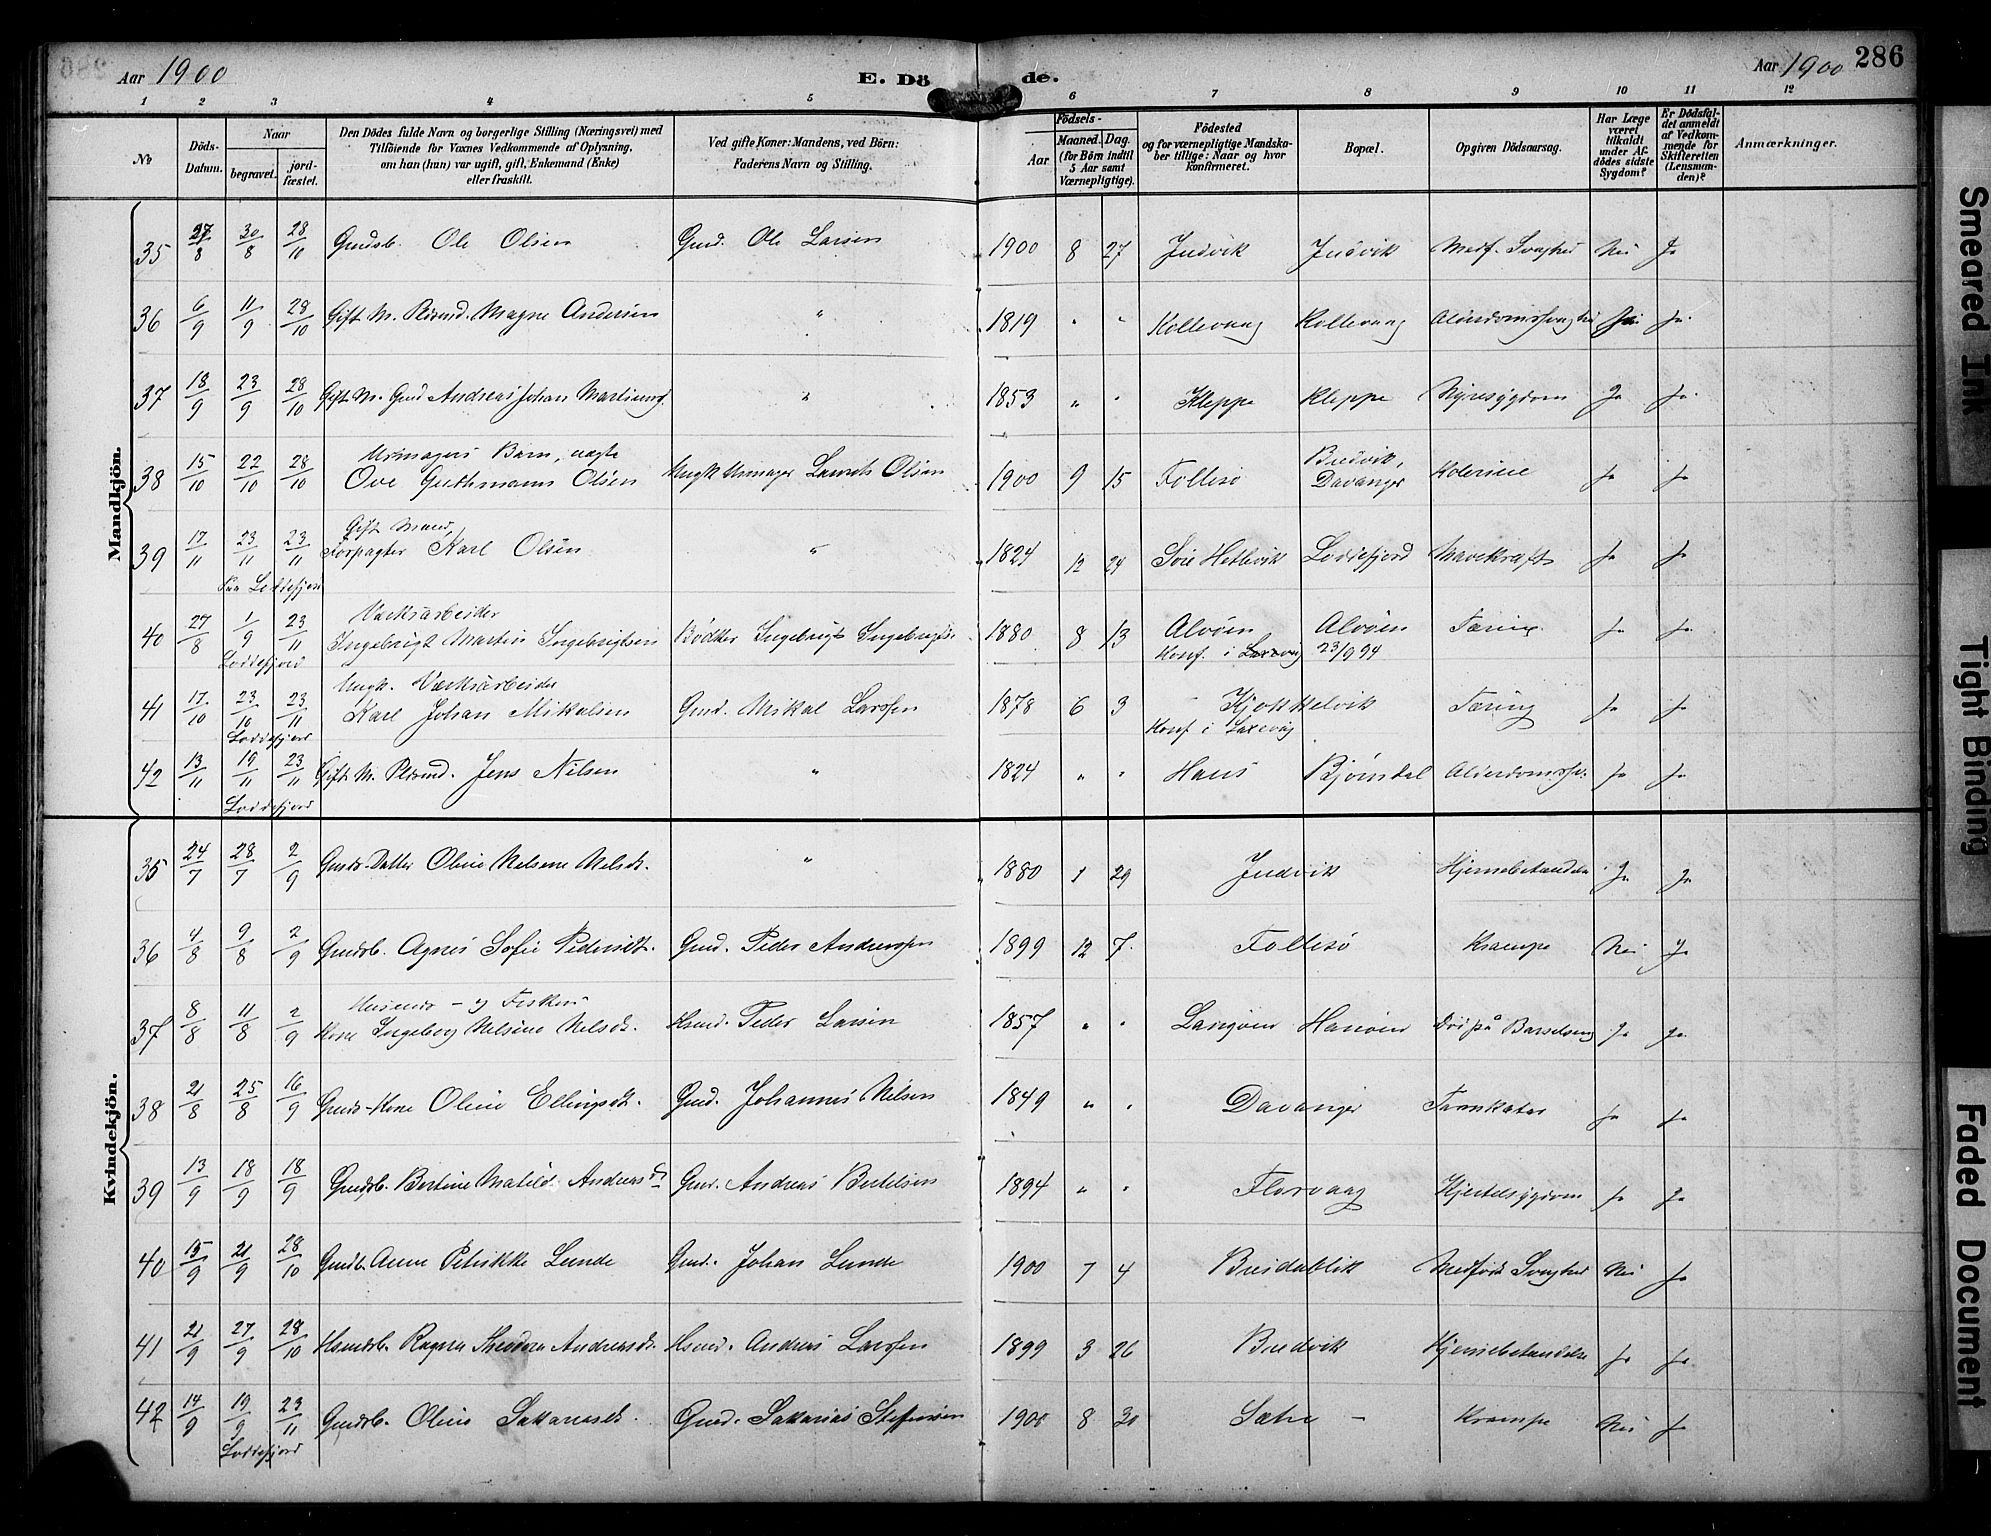 Aar 1900 E. Dö de. Aar 1900 286
1 2 3 4 5 6 7 8 9 10 11 12
No
Döds-Datum.
Naar
begravet.
jord-fæstet.
Den Dödes fulde Navn og borgerlige Stilling (Næringsvei) med
Tilföiende for Voxnes Vedkommende af Oplysning,
om han (hun) var ugift, gift, Enkemand (Enke)
eller fraskilt.
Ved gifte Koner: Mandens, ved Börn:
Faderens Navn og Stilling.
Födsels-
Aar
Maaned. Dag.
(for Börn indtil
5 Aar samt
Værnepligtige).
Födested
og for værnepligtige Mandska-
ber tillige: Naar og hvor
konfirmeret.
Bopæl.
Opgiven Dödsaarsag.
Har Læge
været
tilkaldt
under Af-
dödes sidste
Sygdom?
Er Dödsfal-
det anmeldt
af Vedkom-
mende for
Skifteretten
(Lensman-
den)?
Anmærkninger.
Mandkjön.
35 27/8 30/8 28/10 Gmdsb. Ole Olsen Gmd. Ole Larsen 1900 8 27 Indvik Indvik Medf. Svaghed Nei Ja
36 6/9 11/9 28/10 Gift M. Pldsmd. Magne Andersen " 1819 " " Kollevaag Kollevaag Ja.
37 18/9 23/9 28/10 Gift M. Gmd Andreas Johan " 1853 " " Kleppe Kleppe Nyresygdom Ja Ja.
Urmagers Barn, ægte Bredvik,
38 15/10 22/10 28/10 Ove Guthmann Olsen Ungk Urmager Laurits Olsen 1900 9 15 Follesø Davanger Kolerine Ja Ja
Gift Mand,
39 17/11 23/11 23/11 Forpagter Karl Olsen " 1824 12 24 Hetlevik Loddefjord Mavekræft Ja Ja
Paa Loddefjord
Værksarbeider
40 27/8 1/9 23/11 Ingebrigt Martin Ingebrigtsen Bødker Ingebrigt Ingebrigtsen 1880 8 13 Alvøen Alvøen Tæring Ja Ja.
Loddefjord Konf. i Laxevaag 23/9 94
Ungk. Værksarbeider
41 17/10 23/10 23/11 Karl Johan Mikalsen Gmd. Mikal Larssen 1878 6 3 Tæring Ja Ja
Loddefjord Konf i Laxevåg
42 13/11 19/11 23/11 Gift M. Pldsmd. Jens Nilsen " 1824 " " Haus Bjørndal Ja Ja
Loddefjord
Kvindekjön.
35 24/7 28/7 2/9 Gmds-Datter Oline Nilsine Nilsdt. " 1880 1 29 Indvik Hjernebetændelse Ja Ja
36 4/8 9/8 2/9 Gmdsb. Agnes Sofie Pedersdt. Gmd. Peder Andreassen 1899 12 7. Follesø Krampe Nei Ja
Husmds - og Fisker-
37 8/8 11/8 2/9 Kone Ingeborg Nilsine Nilsdt. Hsmd. Peder Larsen 1857 " " Langøen Hanøen Død på Barselseng Ja Ja
38 21/8 25/8 16/9 Gmds-Kone Oline Ellingsdt. Gmd. Johannes Nilsen 1849 " " Davanger Tarmkatar Ja Ja
39 13/9 18/9 18/9 Gmdsb. Bertine Matild Andreasdt Gmd. Andreas Bertelsen 1894 " " Florvaag Kjertelsygdom Ja Ja
40 15/9 21/9 28/10 Gmdb. Anna Lunde Gmd. Johan Lunde 1900 7 4 Breidablik Medfødt Svaghed Nei Ja
41 21/9 27/9 28/10 Hsmdsb. Ragna Theodora Andreasdt. Hsmd. Andreas Larssen 1899 3 26 Bredvik Hjernebetændelse Ja Ja
42 14/9 19/9 23/11 Gmdsb. Oline Sakariasdt. Gmd. Sakarias Steffensen 1900 8 30 Sætre - Krampe Nei Ja
Loddefjord
Smeared Ink
Tight Binding
Faded Document